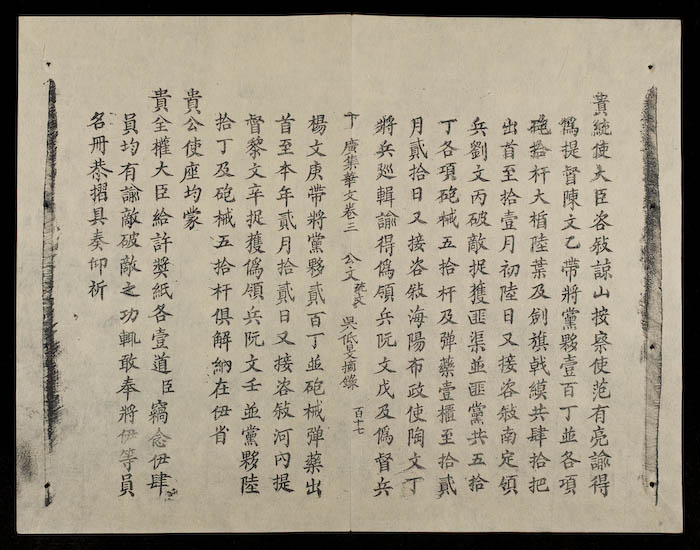 貴統使大臣咨敍諒山按察使范有亮諭得
僞提督陳文乙帶將黨夥壹百丁並各項
砲拾杆大楯陸葉及劍旗戟縸共肆拾把
出首至拾壹月初陸日又接咨敍南定領
兵劉文丙破敵捉獲匪渠並匪黨共五拾
丁各項砲械五拾杆及彈藥壹櫃至拾貳
月貳拾日又接咨敍海陽布政使陶文丁
將兵廵輯諭得僞領兵阮文戊及僞督兵
廣集華文卷三 公文 吳低旻摘錄 百十七
楊文庚帶將黨夥貳百丁並砲械彈藥出
首至本年貳月拾貳日又接咨敍河內提
督黎文辛捉獲僞領兵阮文壬並黨夥陸
拾丁及砲械五拾杆俱解納在伊省
貴公使座均蒙
貴全權大臣給許獎紙各壹道臣竊念伊肆
員均有諭敵破敵之功輒敢奉將伊等員
名冊恭摺具奏仰祈